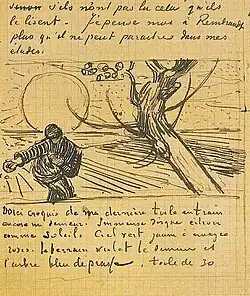 sinon s'ils n'ont pas lu cela qu'ils
le lisent. Je pense moi à Rembrandt
plus qu'il ne peut paraitre dans mes
études.
Voici croquis de ma dernière toile en train
encore un semeur. Immense disque citron
comme soleil. Ciel vert jaune à nuages
roses. le terrain violet le semeur et
l'arbre bleu de prusse toile de 30